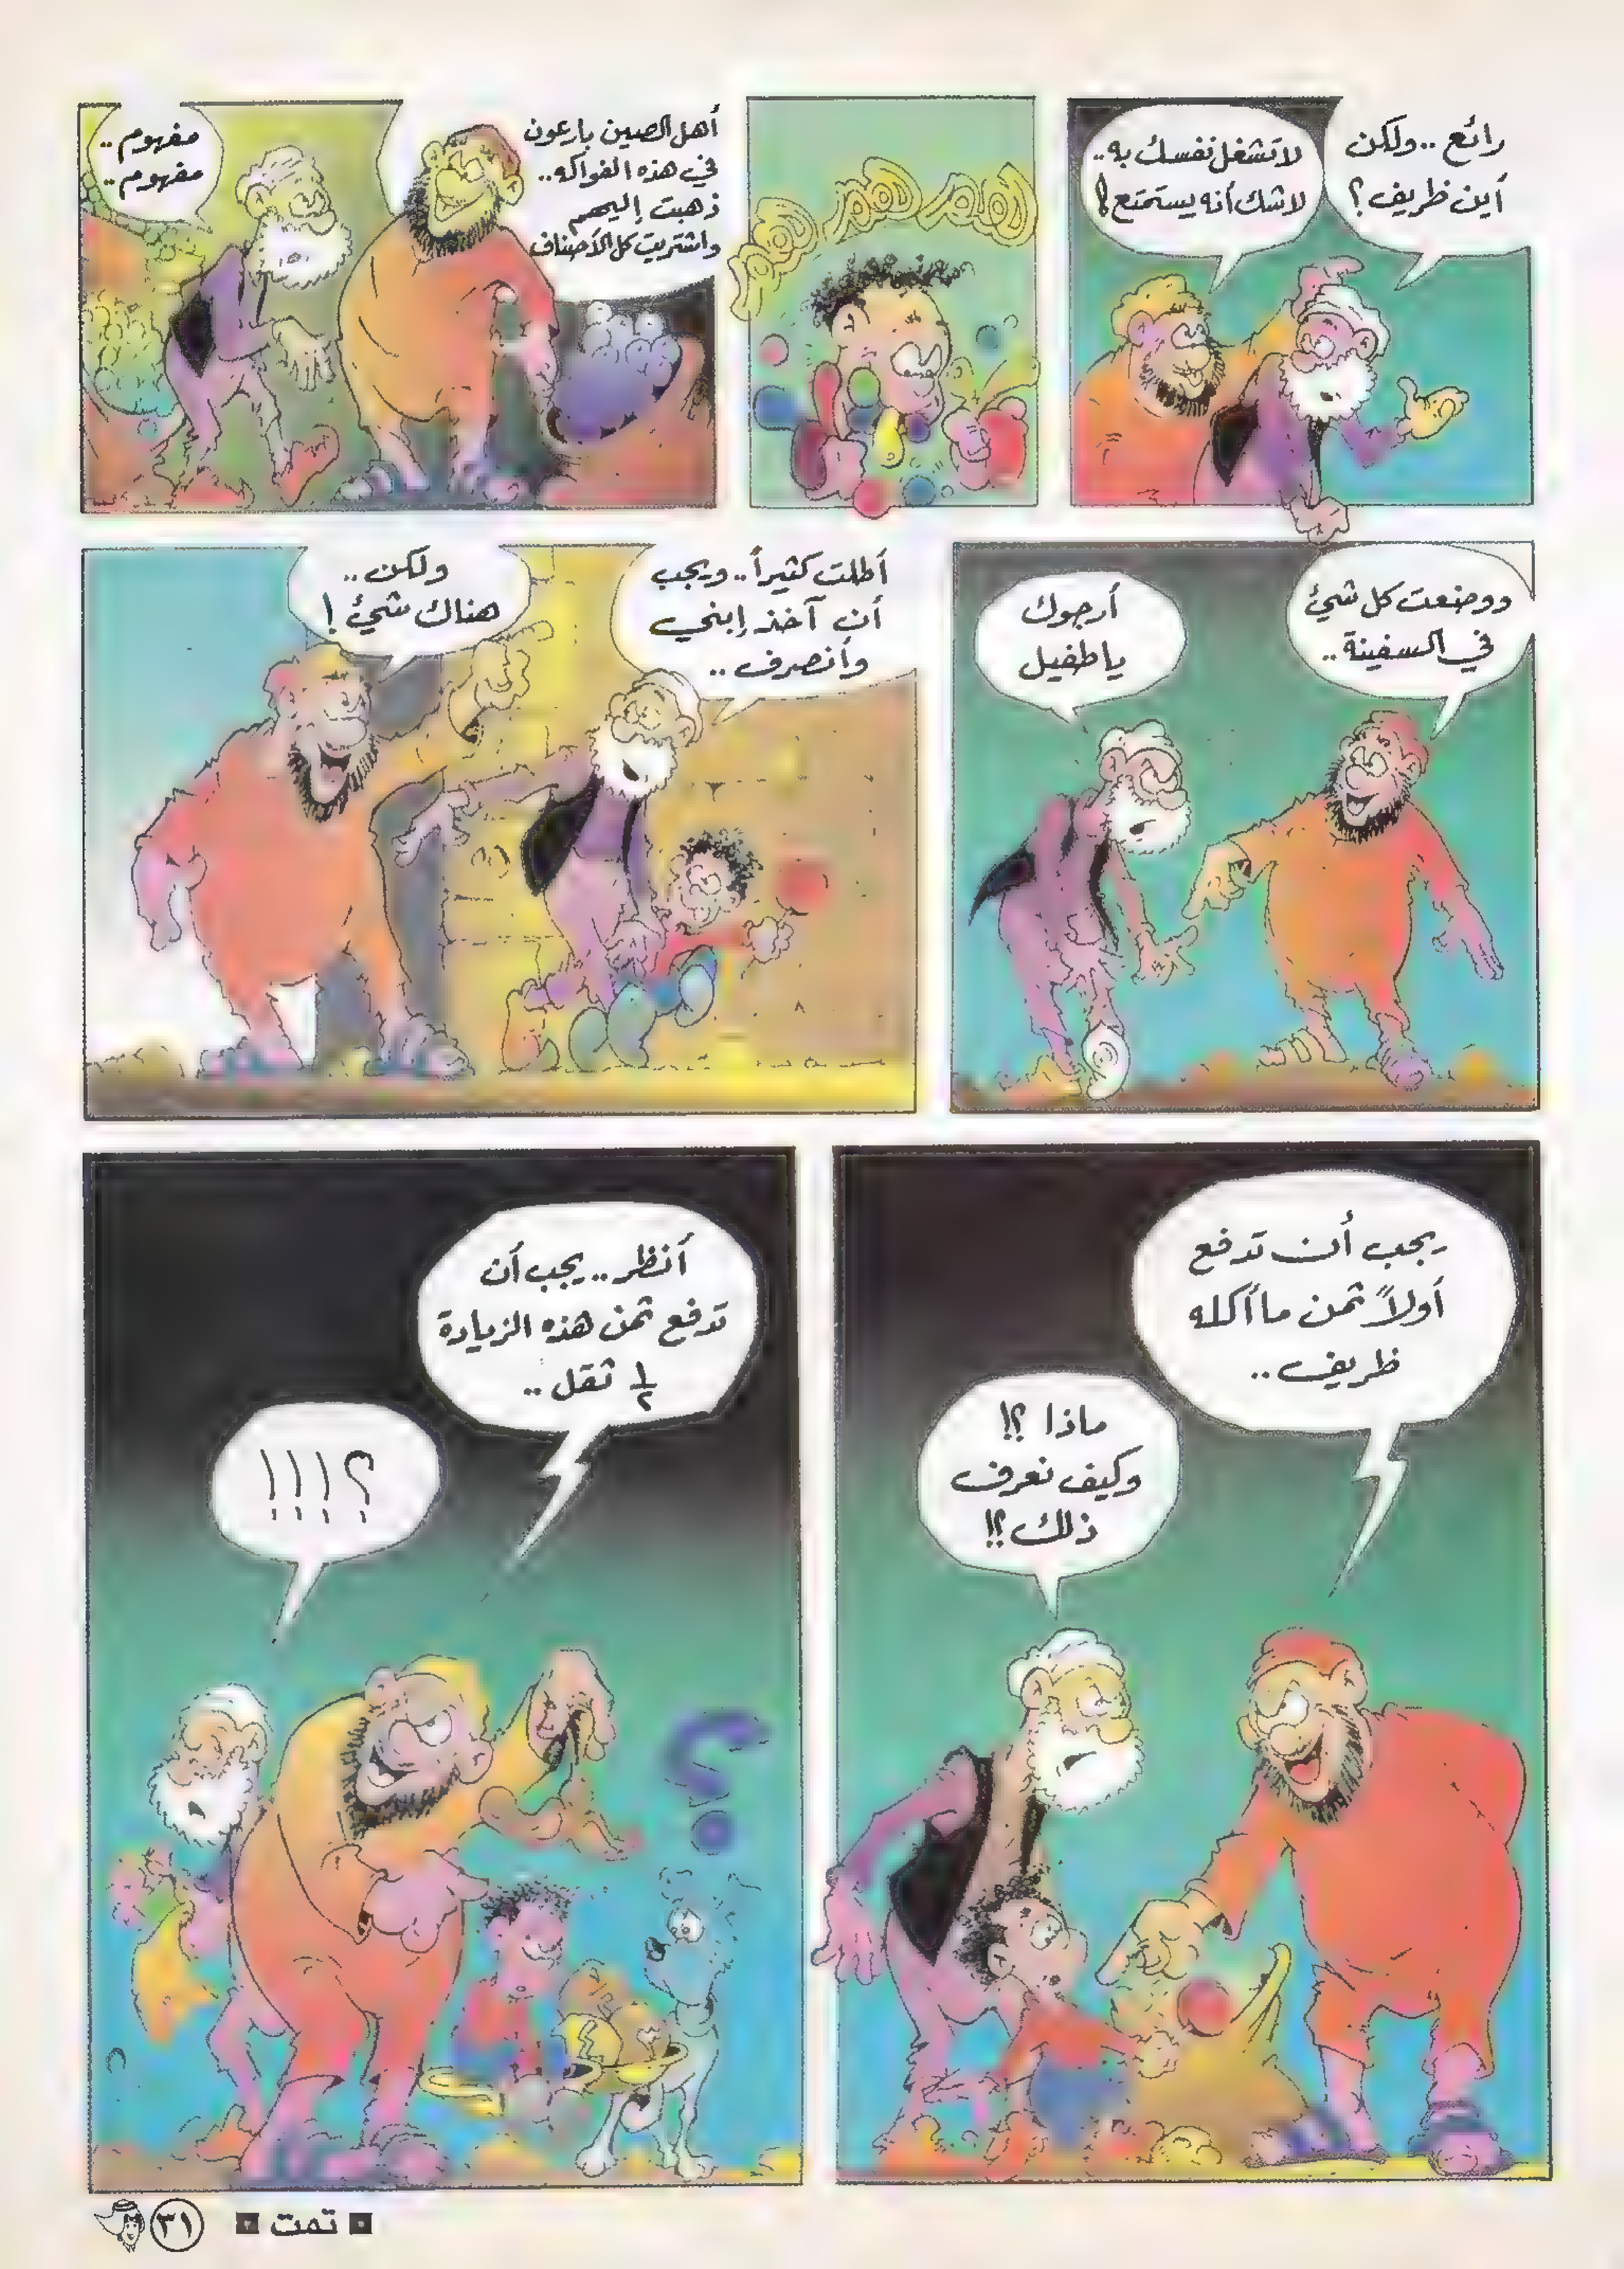 رائع .. ولكن
أين ظريف ؟
لا تشغل نفسك به ..
لا شك أنه يستمتع !
همر همر همر همر
أهل الصين بارعون
في هذه الفواكه ..
ذهبت إليهم
واشتريت كل الأصناف
مفهوم ..
مفهوم ..
ووضعت كل شئ
في السفينة ..
أرجوك
يا طفيل
أطلت كثيراً .. ويجب
أن آخذ إبني
وأنصرف ..
ولكن ..
هناك شئ !
يجب أن تدفع
أولاً ثمن ما أكله
ظريف ..
ماذا ؟!
وكيف نعرف
ذلك ؟!
أنظر .. يجب أن
تدفع ثمن هذه الزيادة
½ ثقل ..
؟!!!
؟
تمت
٣١